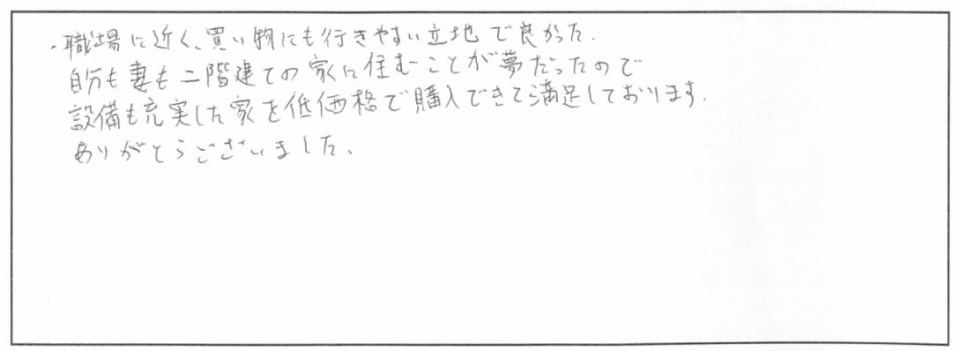 ・職場に近く、買い物にも行きやすい立地で良かった.
自分も妻も二階建ての家に住むことが夢だったので
設備も充実した家を低価格で購入できて満足しております.
ありがとうございました、